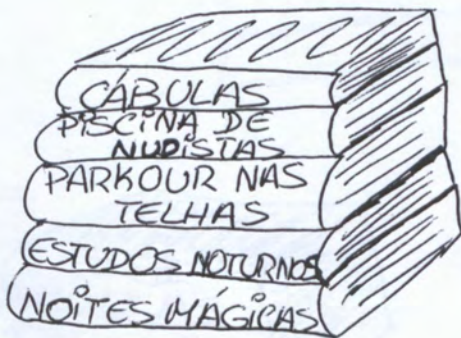 CÁBULAS
PISCINA DE
NUDISTAS
PARKOUR NAS
TELHAS
ESTUDOS NOTURNOS
NOITES MÁGICAS